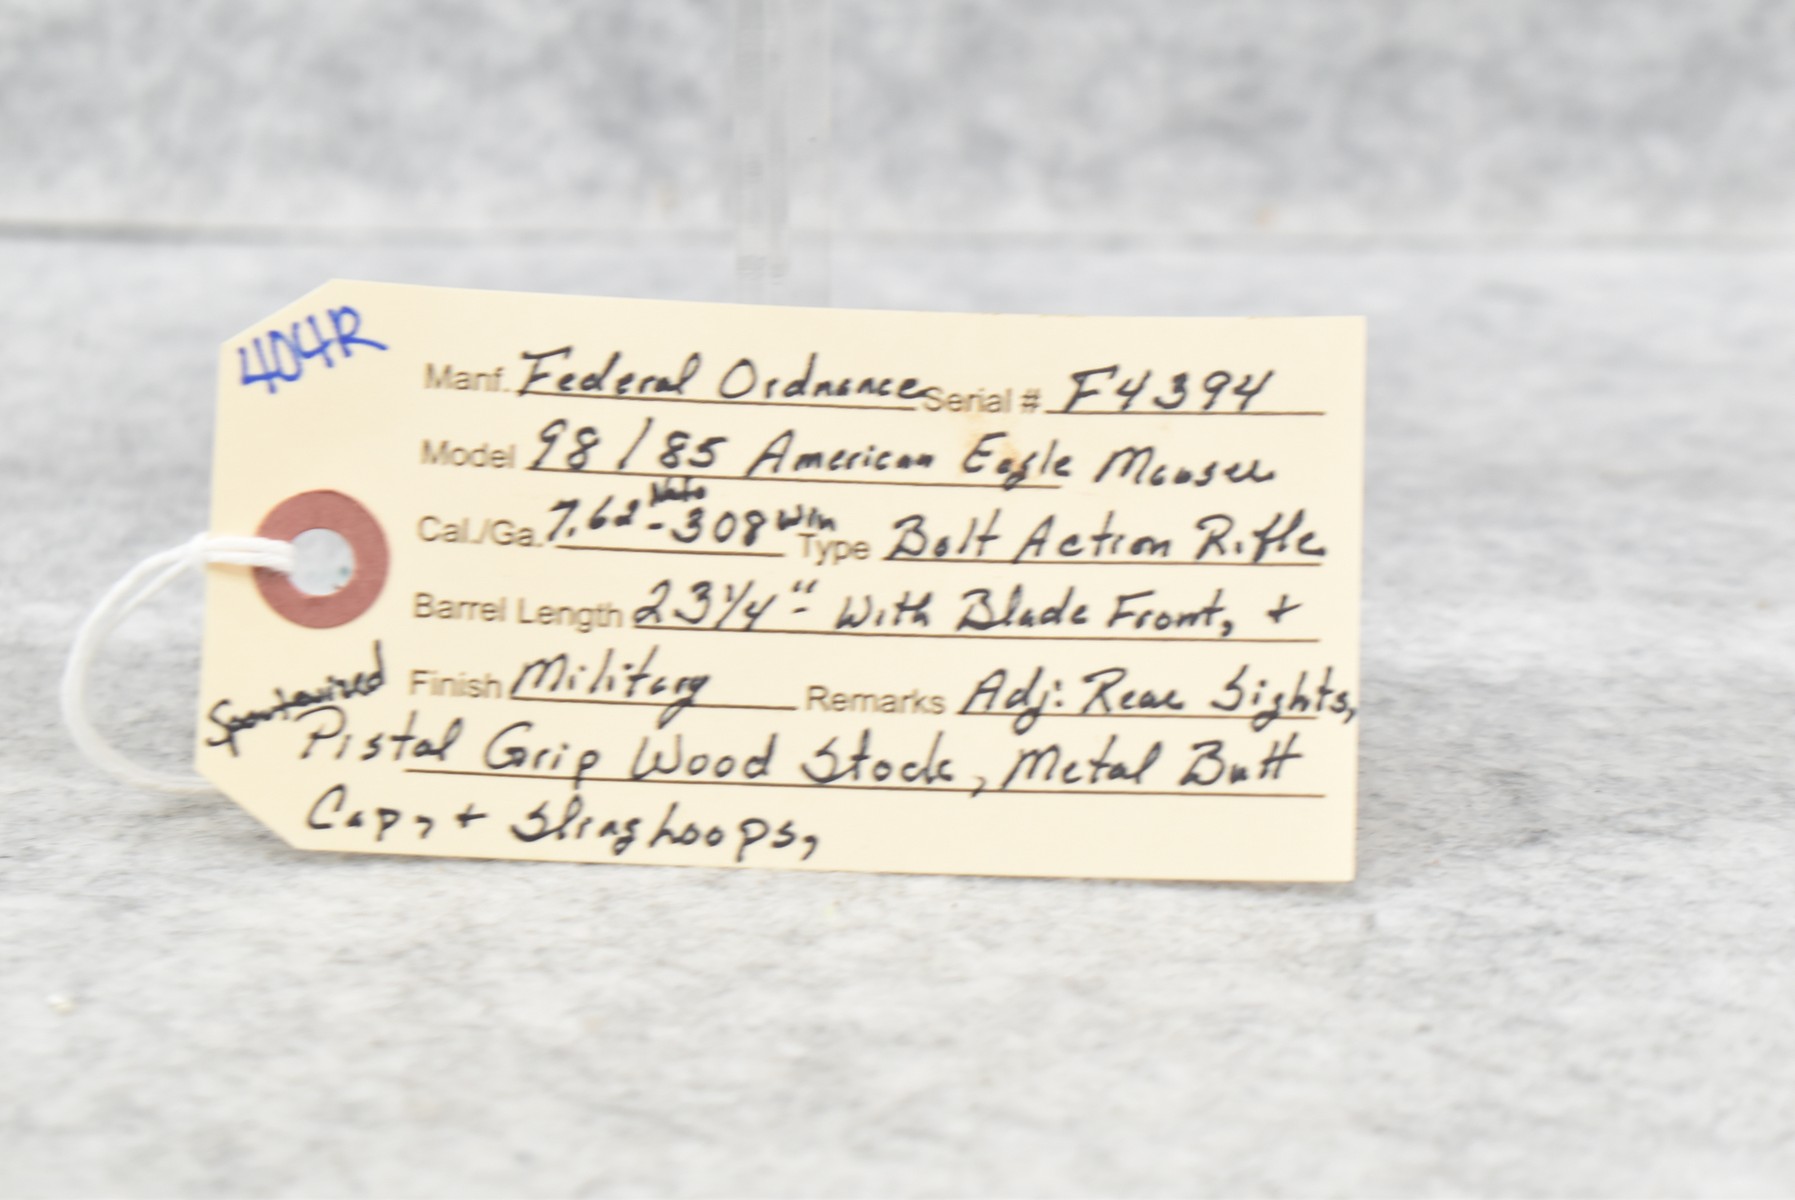 404R
Manf. Federal Ordnance Serial # F4394
Model 98/85 American Eagle Mauser
Cal./Ga. 7.62 Nato - 308 Win Type Bolt Action Rifle
Barrel Length 23 1/4" With Blade Front, +
Finish Military Remarks Adj. Rear Sights,
Sporterized
Pistol Grip Wood Stock, Metal Butt
Cap, + Sling Loops,